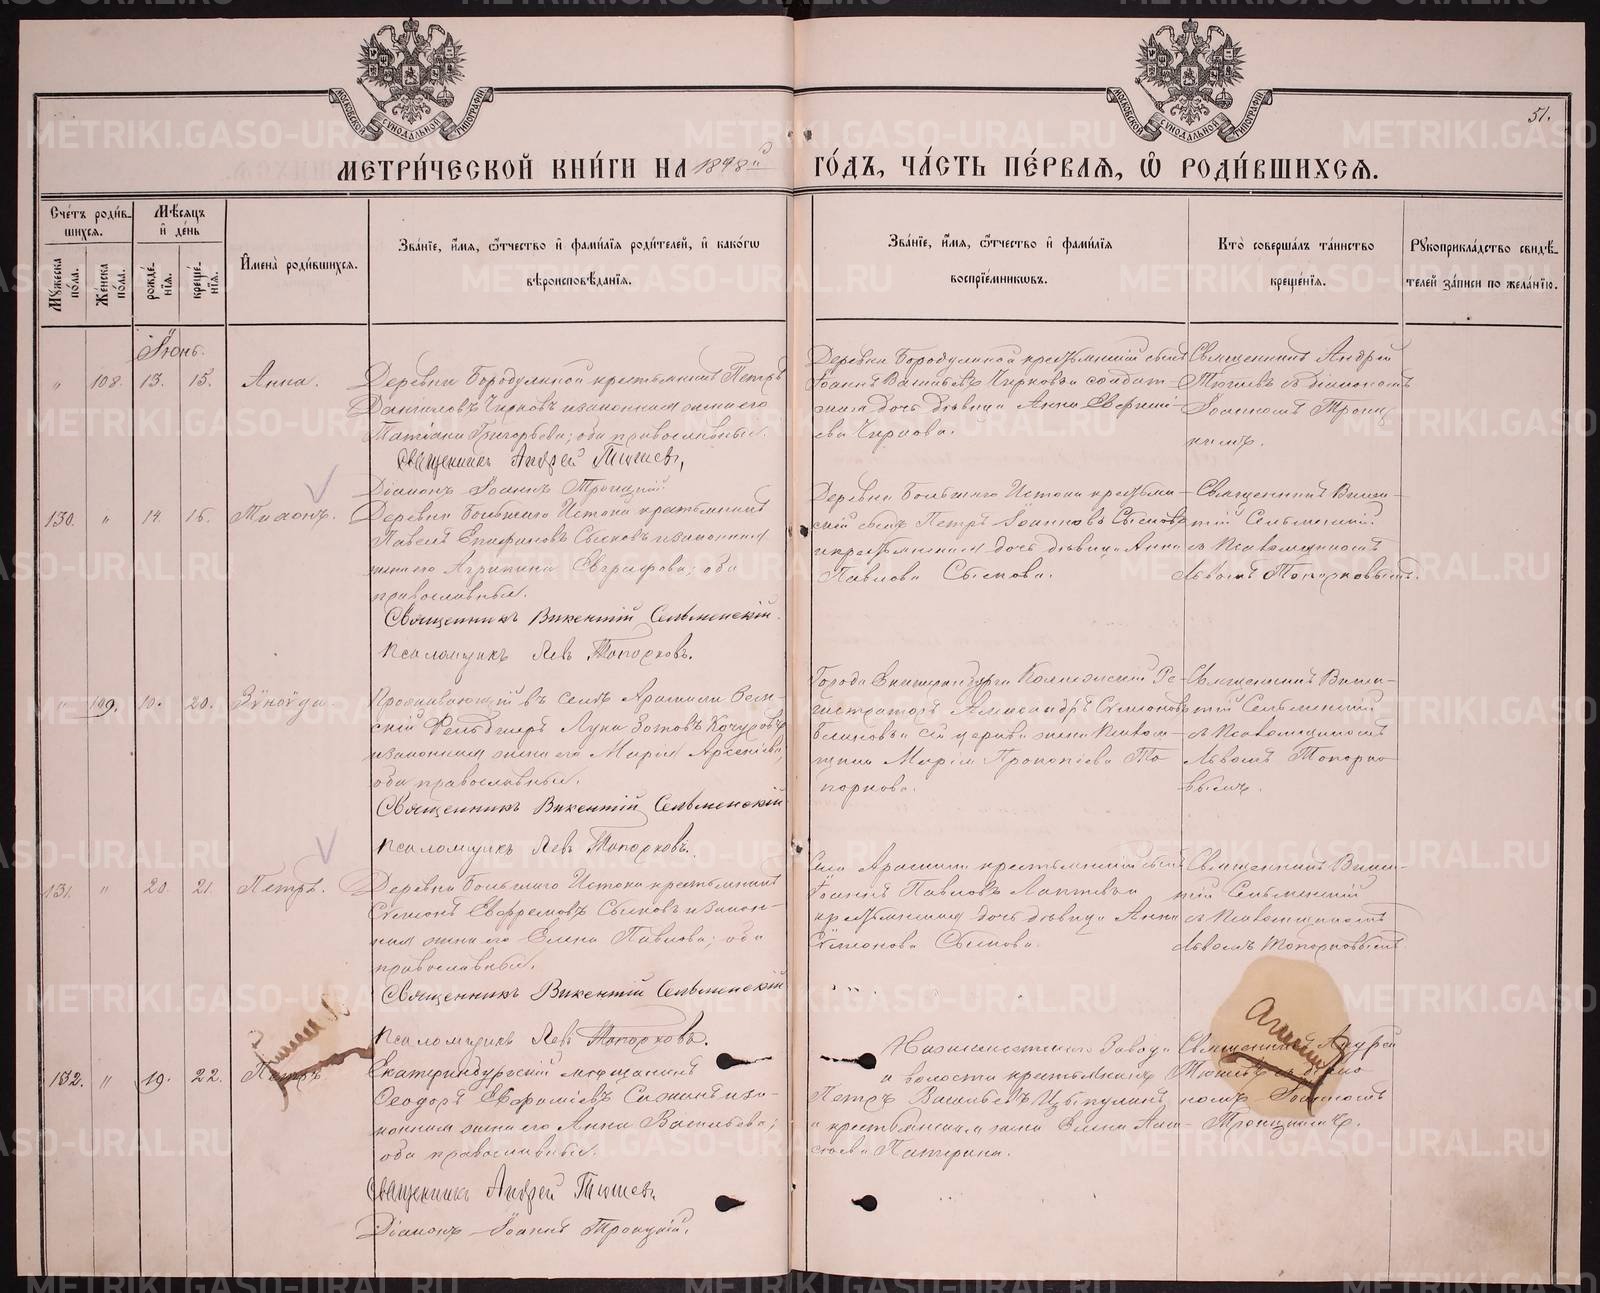 МОСКОВСКОЙ СѴНОДАЛЬНОЙ ТИПОГРАФІИ
МОСКОВСКОЙ СѴНОДАЛЬНОЙ ТИПОГРАФІИ
51.
МЕТРИ́ЧЕСКОЙ КНИ́ГИ НА 1898й ГО́ДЪ, ЧА́СТЬ ПЕ́РВАЯ, Ѡ РОДИ́ВШИХСЯ.
Сче́тъ роди́в-
шихся.
Мѣ́сяцъ
и де́нь
Му́жеска по́ла.
Же́нска по́ла.
рожде́нїя.
креще́нїя.
И҆мена̀ роди́вшихся.
Зва́нїе, и҆́мя, ѻ҆́тчество и҆ фами́лїя роди́телей, и҆ како́гѡ
вѣроисповѣ́данїя.
Зва́нїе, и҆́мя, ѻ҆́тчество и҆ фами́лїя
воспрїе́мниковъ.
Кто̀ соверша́лъ та́инство
креще́нїя.
Рꙋкоприкла́дство свидѣ́-
телей за́писи по жела́нїю.
Іюнь.
" 108. 13. 15. Анна.
Деревни Бородулиной крестьянинъ Петръ
Даниловъ Чирковъ и законная жена его
Татіана Григорьева; оба православные.
Священникъ Андрей Тюшевъ,
Діаконъ Іоаннъ Троицкій.
Деревни Бородулиной крестьянскій сынъ
Іоаннъ Васильевъ Чирковъ и солдат-
ская дочь дѣвица Анна Евгені-
ева Чиркова.
Священникъ Андрей
Тюшевъ съ діакономъ
Іоанномъ Троиц-
кимъ.
130. " 14. 16. Тихонъ.
Деревни Большаго Истока крестьянинъ
Павелъ Епифановъ Сысковъ и законная
жена его Агрипина Евграфова; оба
православные.
Священникъ Викентій Сельменскій.
Псаломщикъ Левъ Топорковъ.
Деревни Большаго Истока крестьян-
скій сынъ Петръ Іоанновъ Сысковъ
и крестьянская дочь дѣвица Анна
Павлова Сыскова.
Священникъ Викен-
тій Сельменскій
съ Псаломщикомъ
Львомъ Топорковымъ.
" 109. 10. 20.
Проживающій въ селѣ Арамили Зем-
скій Фельдшеръ Лука Зотовъ
и законная жена его Марія Арсеніева;
оба православные.
Священникъ Викентій Сельменскій
Псаломщикъ Левъ Топорковъ.
Города Екатеринбурга Коллежскій Ре-
гистраторъ Александръ Симеоновъ
Блиновъ и сей церкви жена Псалом-
щика Марія Прокопіева То-
поркова.
Священникъ Викен-
тій Сельменскій
съ Псаломщикомъ
Львомъ Топорко-
вымъ.
131. " 20. 21. Петръ.
Деревни Большаго Истока крестьянинъ
Симеонъ Евфремовъ Сысковъ и закон-
ная жена его Елена Павлова; оба
православные.
Священникъ Викентій Сельменскій
Псаломщикъ Левъ Топорковъ.
Села Арамили крестьянскій сынъ
Іоаннъ Павловъ Лаптевъ и
крестьянская дочь дѣвица Анна
Симеонова Сыскова.
Священникъ Викен-
тій Сельменскій
съ Псаломщикомъ
Львомъ Топорковымъ.
132. " 19. 22. Петръ
Екатеринбургскій мѣщанинъ
Ѳеодоръ Евфиміевъ и за-
конная жена его Анна Васильева;
оба православные.
Священникъ Андрей Тюшевъ
Діаконъ Іоаннъ Троицкій.
Нижнеисетскаго Завода
и волости крестьянинъ
Петръ Васильевъ
и крестьянская жена Елена
Священникъ Андрей
Тюшевъ съ діако-
номъ Іоанномъ
Троицкимъ.
METRIKI.GASO-URAL.RU